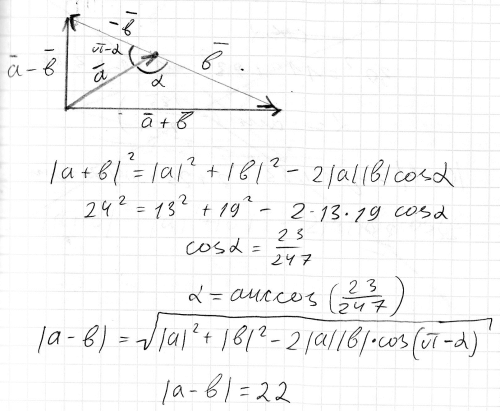 -b̅
π-α
a̅ - b̅
a̅
α
b̅
a̅ + b̅
|a+b|² = |a|² + |b|² - 2|a||b|cosα
24² = 13² + 19² - 2·13·19 cosα
cosα = 23/247
α = arccos(23/247)
|a-b| = √|a|² + |b|² - 2|a||b|·cos(π-α)
|a-b| = 22